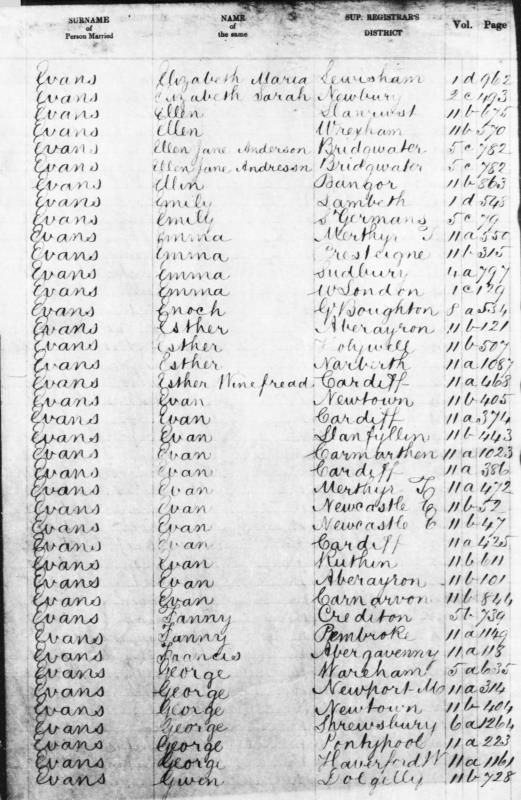 SURNAME of Person Married NAME of the same SUP. REGISTRAR'S DISTRICT Vol. Page
Evans Elizabeth Maria Lewisham 1 d 962
Evans Elizabeth Sarah Newbury 2 c 493
Evans Ellen Llanrwst 11 b 675
Evans Ellen Wrexham 11 b 570
Evans Ellen Jane Anderson Bridgwater 5 c 782
Evans Ellen Jane Andresson Bridgwater 5 c 782
Evans Ellin Bangor 11 b 863
Evans Emily Lambeth 1 d 548
Evans Emily St Germans 5 c 79
Evans Emma Merthyr T 11 a 550
Evans Emma Presteigne 11 b 315
Evans Emma Sudbury 4 a 797
Evans Emma W London 1 c 129
Evans Enoch Gt Boughton 8 a 534
Evans Esther Aberayron 11 b 121
Evans Esther Holywell 11 b 507
Evans Esther Narberth 11 a 1087
Evans Esther Winefread Cardiff 11 a 468
Evans Evan Newtown 11 b 405
Evans Evan Cardiff 11 a 374
Evans Evan Llanfyllin 11 b 443
Evans Evan Carmarthen 11 a 1023
Evans Evan Cardiff 11 a 386
Evans Evan Merthyr T 11 a 472
Evans Evan Newcastle E 11 b 52
Evans Evan Newcastle E 11 b 47
Evans Evan Cardiff 11 a 425
Evans Evan Ruthin 11 b 611
Evans Evan Aberayron 11 b 101
Evans Evan Carnarvon 11 b 844
Evans Fanny Crediton 5 b 739
Evans Fanny Pembroke 11 a 1149
Evans Francis Abergavenny 11 a 118
Evans George Wareham 5 a 635
Evans George Newport M 11 a 314
Evans George Newtown 11 b 404
Evans George Shrewsbury 6 a 1264
Evans George Pontypool 11 a 223
Evans George Haverford W 11 a 1161
Evans Gwen Dolgelly 11 b 728